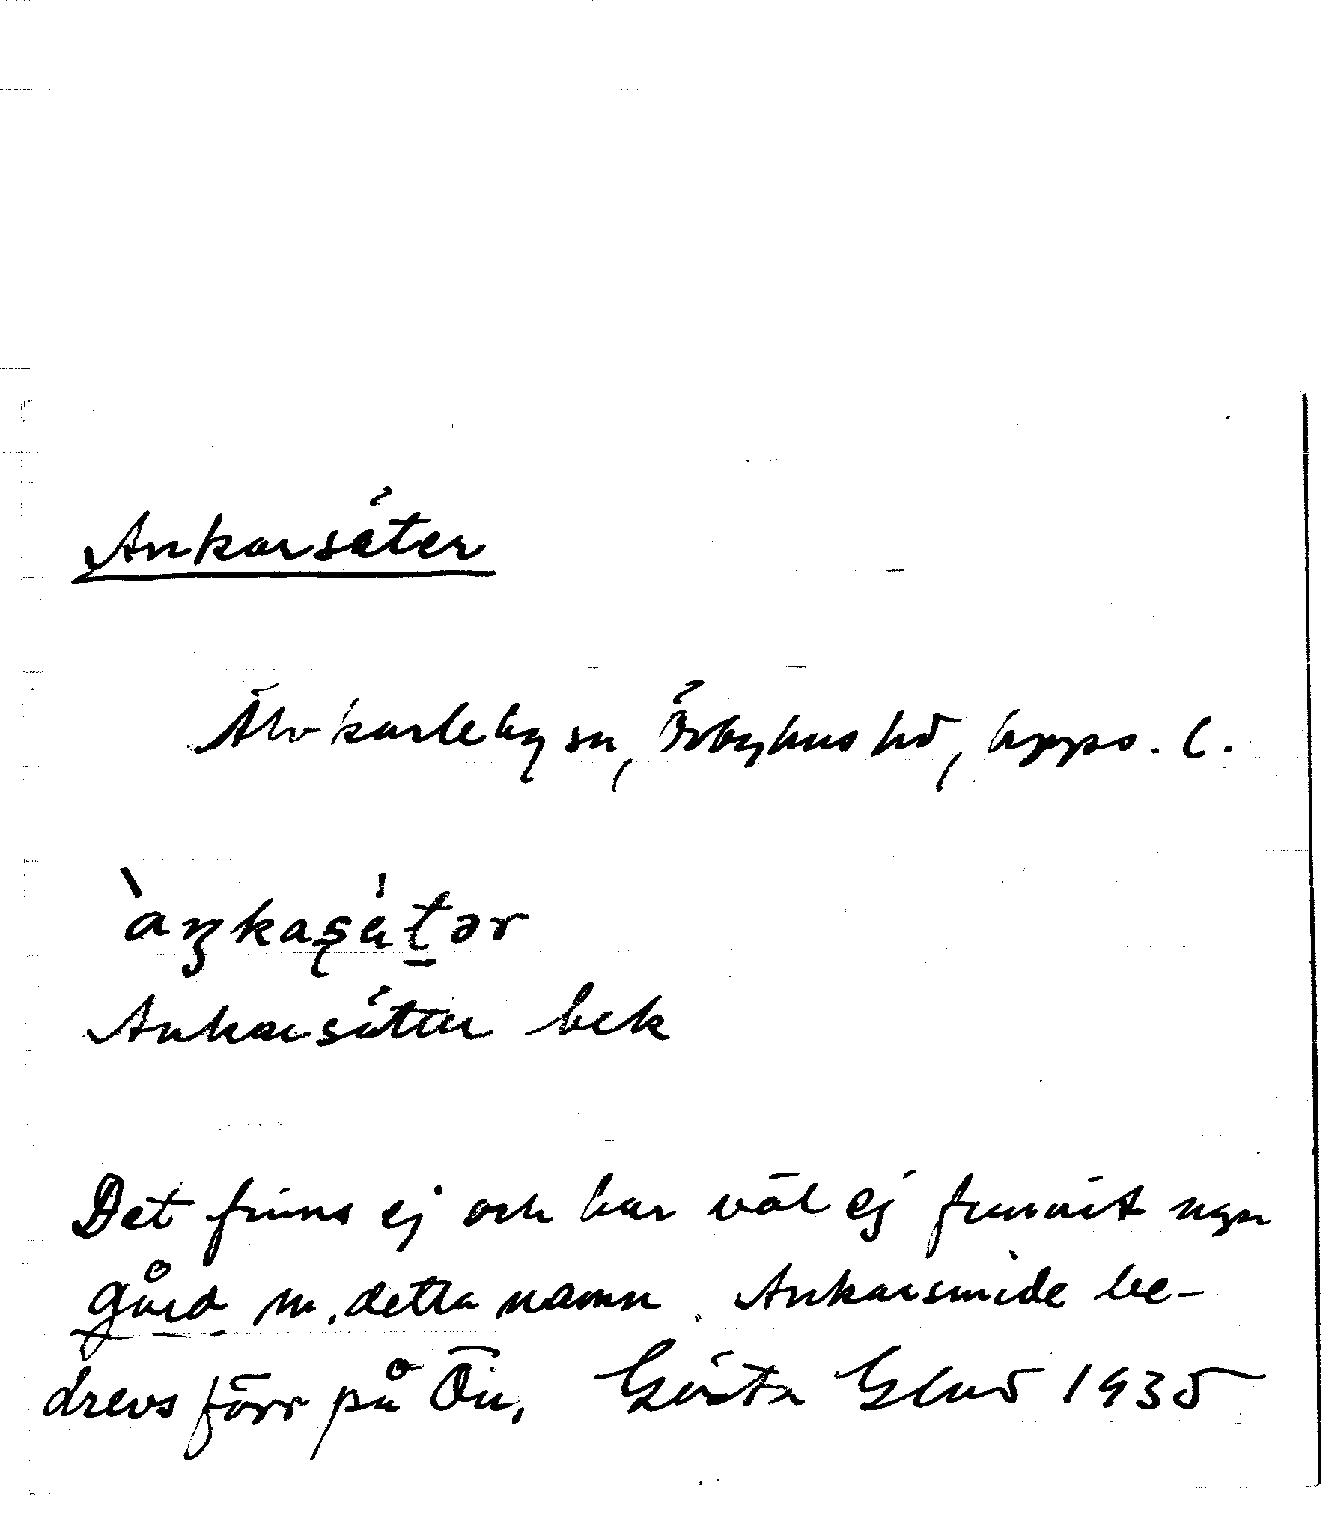 Ankarsäter
Älvkarleby sn, Örbyhus hd, Upps. l.
Ankarsäter bek
Det finns ej och har väl ej funnit ngn
gård m. detta namn. Ankarsmide be-
drevs förr på Ön. Gösta 1935